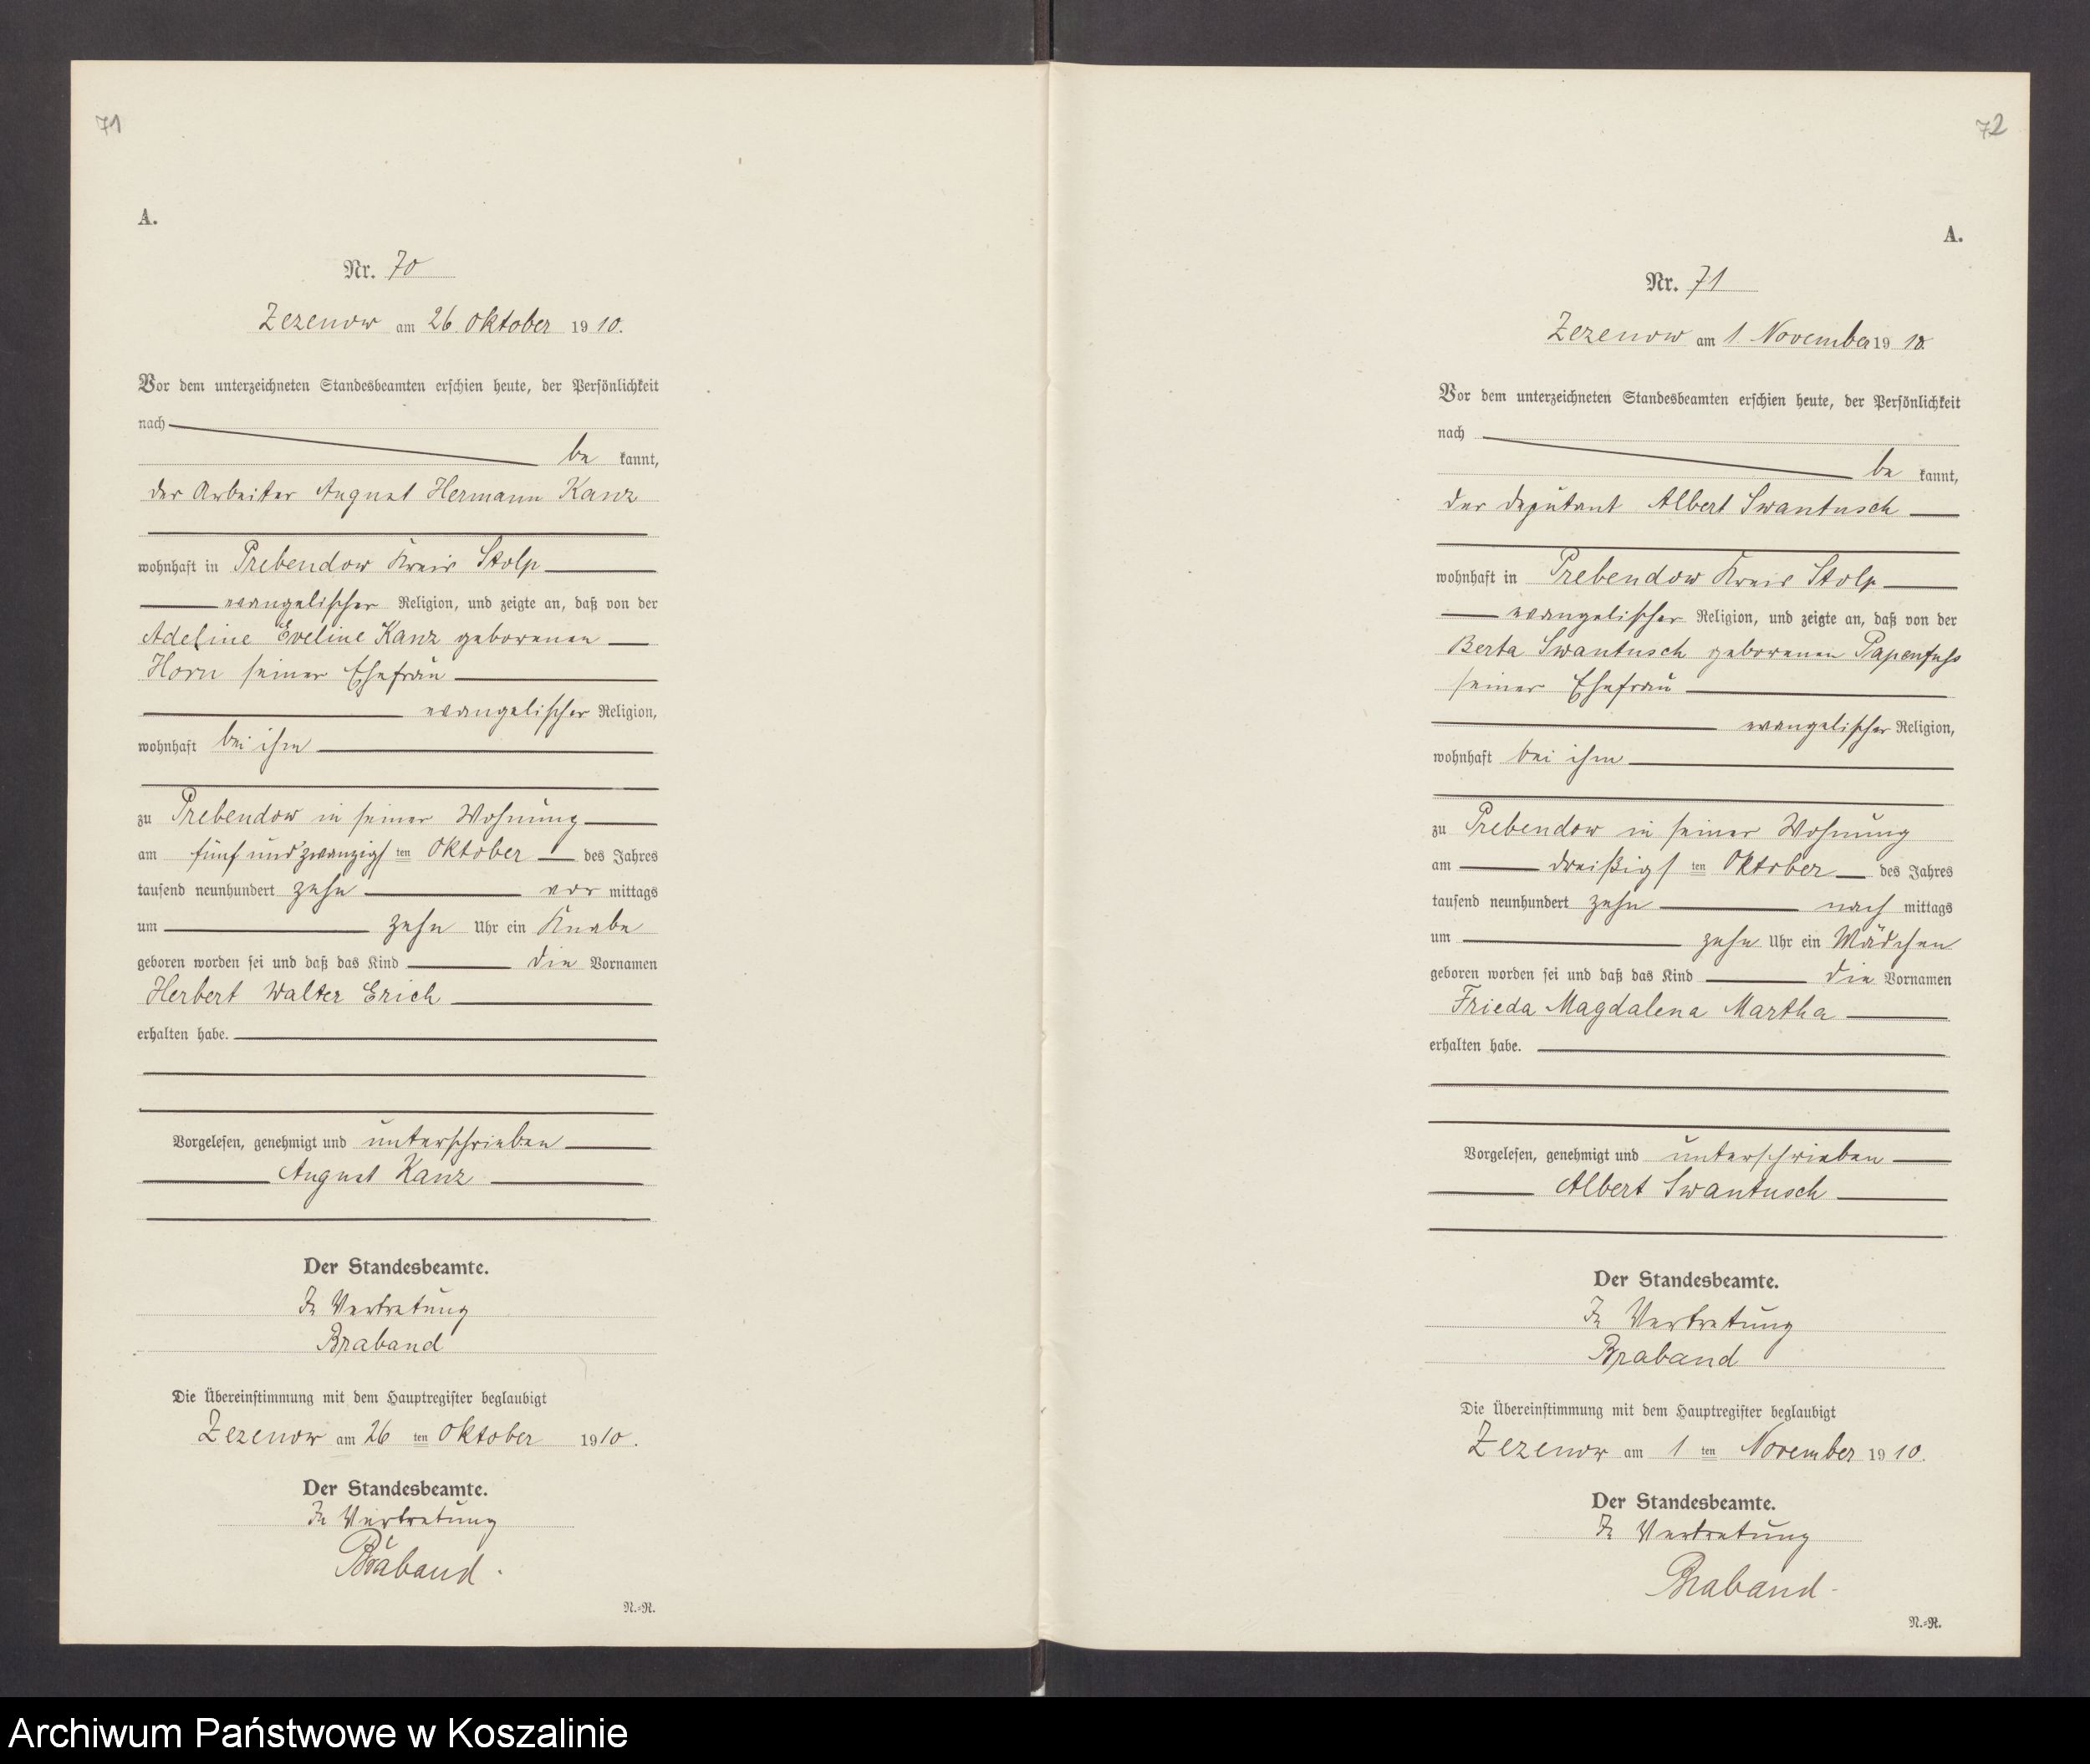 71
A.
Nr. 70
Zezenow am 26. Oktober 1910.
Vor dem unterzeichneten Standesbeamten erschien heute, der Persönlichkeit
nach
be kannt,
der Arbeiter August Hermann Kanz
wohnhaft in Prebendow Kreis Stolp
evangelischer Religion, und zeigte an, daß von der
Adeline Eveline Kanz geborenen
Horn seiner Ehefrau
evangelischer Religion,
wohnhaft bei ihm
zu Prebendow in seiner Wohnung
am fünf und zwanzigsten Oktober des Jahres
tausend neunhundert zehn vor mittags
um zehn Uhr ein Knabe
geboren worden sei und daß das Kind die Vornamen
Herbert Walter Erich
erhalten habe.
Vorgelesen, genehmigt und unterschrieben
August Kanz
Der Standesbeamte.
In Vertretung
Braband
Die Übereinstimmung mit dem Hauptregister beglaubigt
Zezenow am 26 ten Oktober 1910.
Der Standesbeamte.
In Vertretung
Braband.
N.=R.
72
A.
Nr. 71
Zezenow am 1. November 1910.
Vor dem unterzeichneten Standesbeamten erschien heute, der Persönlichkeit
nach
be kannt,
der Deputant Albert Swantusch
wohnhaft in Prebendow Kreis Stolp
evangelischer Religion, und zeigte an, daß von der
Berta Swantusch geborenen Papenfuss
seiner Ehefrau
evangelischer Religion,
wohnhaft bei ihm
zu Prebendow in seiner Wohnung
am dreißigsten Oktober des Jahres
tausend neunhundert zehn nach mittags
um zehn Uhr ein Mädchen
geboren worden sei und daß das Kind die Vornamen
Frieda Magdalena Martha
erhalten habe.
Vorgelesen, genehmigt und unterschrieben
Albert Swantusch
Der Standesbeamte.
In Vertretung
Braband
Die Übereinstimmung mit dem Hauptregister beglaubigt
Zezenow am 1 ten November 1910.
Der Standesbeamte.
In Vertretung
Braband.
N.=R.
Archiwum Państwowe w Koszalinie